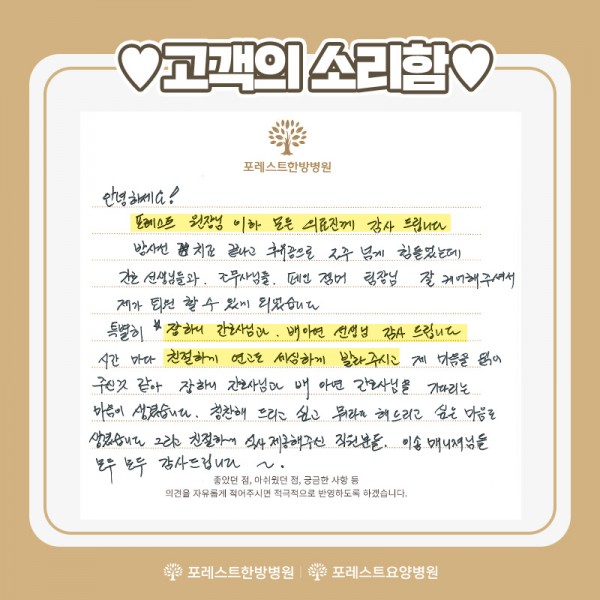 ♥고객의 소리함♥
포레스트한방병원
안녕하세요!
포레스트 원장님 이하 모든 의료진께 감사 드립니다
방사선 치료 끝나고 후유증으로 2주 넘게 힘들었는데
간호 선생님들과. 조무사님들. 팀장님 잘 케어해주셔서
제가 퇴원 할 수 있게 되었습니다
특별히 * 장하니 간호사님과. 배아연 선생님 감사 드립니다
시간 마다 친절하게 연고도 세심하게 발라주시고 제 마음을
주신것 같아 장하니 간호사님과 배 아연 간호사님을 기다리는
마음이 생겼습니다. 칭찬해 드리고 싶고 뭐라도 해드리고 싶은 마음도
생겼습니다 그리고 친절하게 식사 제공해주신 직원분들. 이송 매니져님들
모두 모두 감사드립니다 ~.
좋았던 점, 아쉬웠던 점, 궁금한 사항 등
의견을 자유롭게 적어주시면 적극적으로 반영하도록 하겠습니다.
포레스트한방병원 | 포레스트요양병원